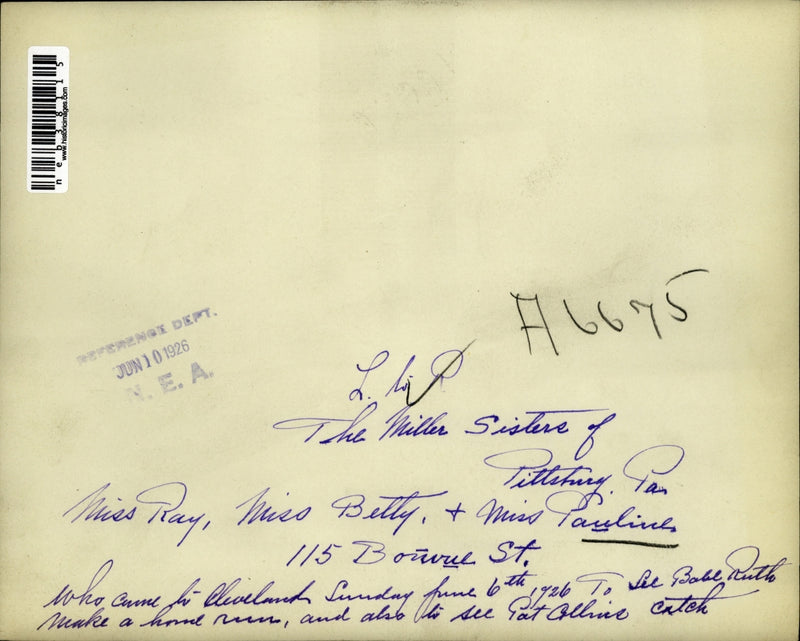 neb38115
www.historicimages.com
A6675
REFERENCE DEPT.
JUN 10 1926
N. E. A.
L. to R
The Miller Sisters of
Pittsburg. Pa.
Miss Ray, Miss Betty, + Miss Pauline
115 Bonvue St.
Who came to Cleveland Sunday June 6th 1926 To See Babe Ruth
make a home run, and also to see Pat Collins catch